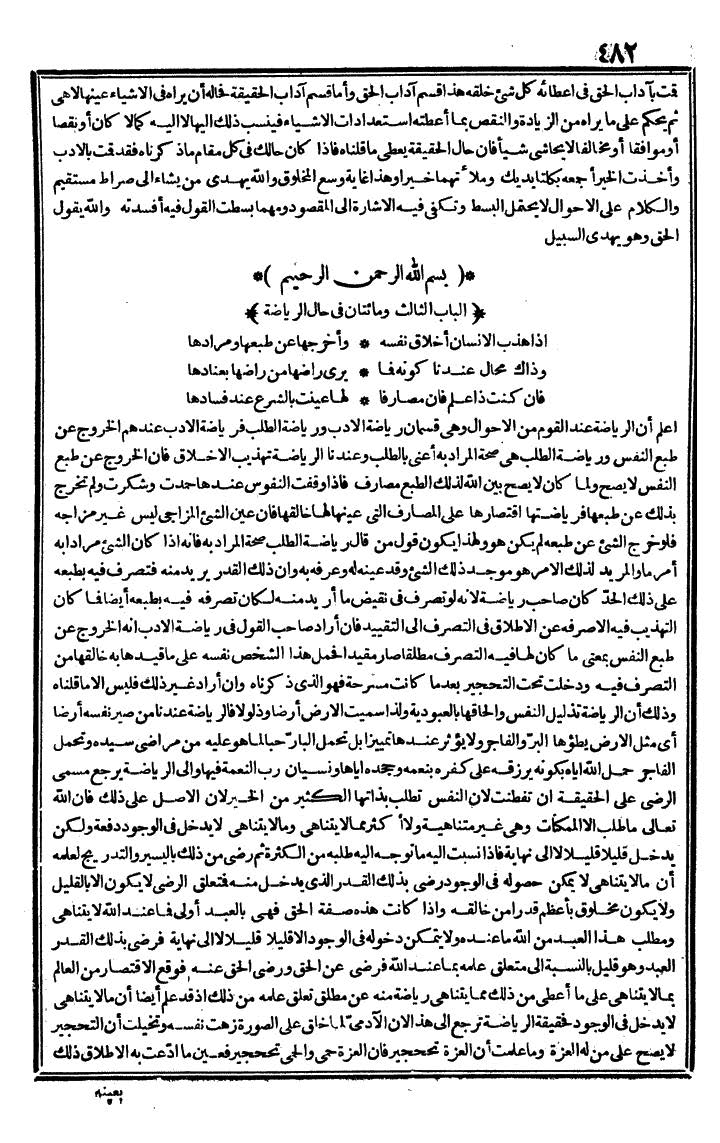 ٤٨٢
قت بآداب الحق فى اعطائه كل شئ خلقه هذا قسم آداب الحق وأما قسم آداب الحقيقة فحاله أن يراه فى الاشياء عينها لاهى
ثم يحكم على ما يراه من الزيادة والنقص بما أعطته استعدادات الاشياء فينسب ذلك اليها لا اليه كمالا كان أو نقصا
أو موافقا أو مخالفا لا يحاشى شيأ فان حال الحقيقة يعطى ما قلناه فاذا كان حالك فى كل مقام ما ذكرناه فقد قت بالادب
وأخذت الخير أجعه بكلتا يديك وملأتهما خيرا وهذا غاية وسع المخلوق والله يهدى من يشاء الى صراط مستقيم
والكلام على الاحوال لا يحتمل البسط وتكفى فيه الاشارة الى المقصود ومهما بسطت القول فيه أفسدته والله يقول
الحق وهو يهدى السبيل
*( بسم الله الرحمن الرحيم )*
﴿ الباب الثالث ومائتان فى حال الرياضة ﴾
اذا هذب الانسان أخلاق نفسه * وأخرجها عن طبعها ومرادها
وذاك محال عندنا كونه فما * يرى راضها من راضها بعنادها
فان كنت ذا علم فان مصارفا * لها عينت بالشرع عند فسادها
اعلم أن الرياضة عند القوم من الاحوال وهى قسمان رياضة الادب ورياضة الطلب فرياضة الادب عندهم الخروج عن
طبع النفس ورياضة الطلب هى صحة المراد به أعنى بالطلب وعندنا الرياضة تهذيب الاخلاق فان الخروج عن طبع
النفس لا يصح ولما كان لا يصح بين الله لذلك الطبع مصارف فاذا وقفت النفوس عندها حمدت وشكرت ولم تخرج
بذلك عن طبعها فرياضتها اقتصارها على المصارف التى عينها لها خالقها فان عين الشئ المزاجى ليس غير مزاجه
فلو خرج الشئ عن طبعه لم يكن هو ولهذا يكون قول من قال رياضة الطلب صحة المراد به فانه اذا كان الشئ مرادا به
أمر ما والمريد لذلك الامر هو موجد ذلك الشئ وقد عينه له وعرفه به وان ذلك القدر يريد منه فتصرف فيه بطبعه
على ذلك الحد كان صاحب رياضة لانه لو تصرف فى نقيض ما أريد منه لكان تصرفه فيه بطبعه أيضا فما كان
التهذيب فيه الا صرفه عن الاطلاق فى التصرف الى التقييد فان أراد صاحب القول فى رياضة الادب انه الخروج عن
طبع النفس بمعنى ما كان لها فيه التصرف مطلقا صار مقيدا لحمل هذا الشخص نفسه على ما قيدها به خالقها من
التصرف فيه ودخلت تحت التحجير بعدما كانت مسرحة فهو الذى ذكرناه وان أراد غير ذلك فليس الا ما قلناه
وذلك أن الرياضة تذليل النفس والحاقها بالعبودية ولذا سميت الارض أرضا وذلولا فالرياضة عندنا من صير نفسه أرضا
أى مثل الارض يطؤها البر والفاجر ولا يؤثر عندها تمييزا بل تحمل البار حبا لما هو عليه من مراضى سيده وتحمل
الفاجر حمل الله اياه بكونه يرزقه على كفره بنعمه وجحده اياها ونسيان رب النعمة فيها والى الرياضة يرجع مسمى
الرضى على الحقيقة ان تفطنت لان النفس تطلب بذاتها الكثير من الخير لان الاصل على ذلك فان الله
تعالى ما طلب الا الممكنات وهى غير متناهية ولا أكثر مما لا يتناهى وما لا يتناهى لا يدخل فى الوجود دفعة ولكن
يدخل قليلا قليلا لا الى نهاية فاذا نسبت اليه ما توجه اليه طلبه من الكثرة ثم رضى من ذلك باليسير والتدريج لعلمه
أن ما لا يتناهى لا يمكن حصوله فى الوجود رضى بذلك القدر الذى يدخل منه فتعلق الرضى لا يكون الا بالقليل
ولا يكون مخلوق بأعظم قدرا من خالقه واذا كانت هذه صفة الحق فهى بالعبد أولى فما عند الله لا يتناهى
ومطلب هذا العبد من الله ما عنده ولا يتمكن دخوله فى الوجود الا قليلا قليلا لا الى نهاية فرضى بذلك القدر
العبد وهو قليل بالنسبة الى متعلق علمه بما عند الله فرضى عن الحق ورضى الحق عنه فوقع الاقتصار من العالم
بما لا يتناهى على ما أعطى من ذلك مما يتناهى رياضة منه عن مطلق تعلق علمه من ذلك اذ قد علم أيضا أن ما لا يتناهى
لا يدخل فى الوجود فحقيقة الرياضة ترجع الى هذا لان الآدمى لما خلق على الصورة زهت نفسه وتخيلت أن التحجير
لا يصح على من له العزة وما علمت أن العزة تحجير فان العزة حمى والحمى تحجير فعين ما ادعت به الاطلاق ذلك
بعينه